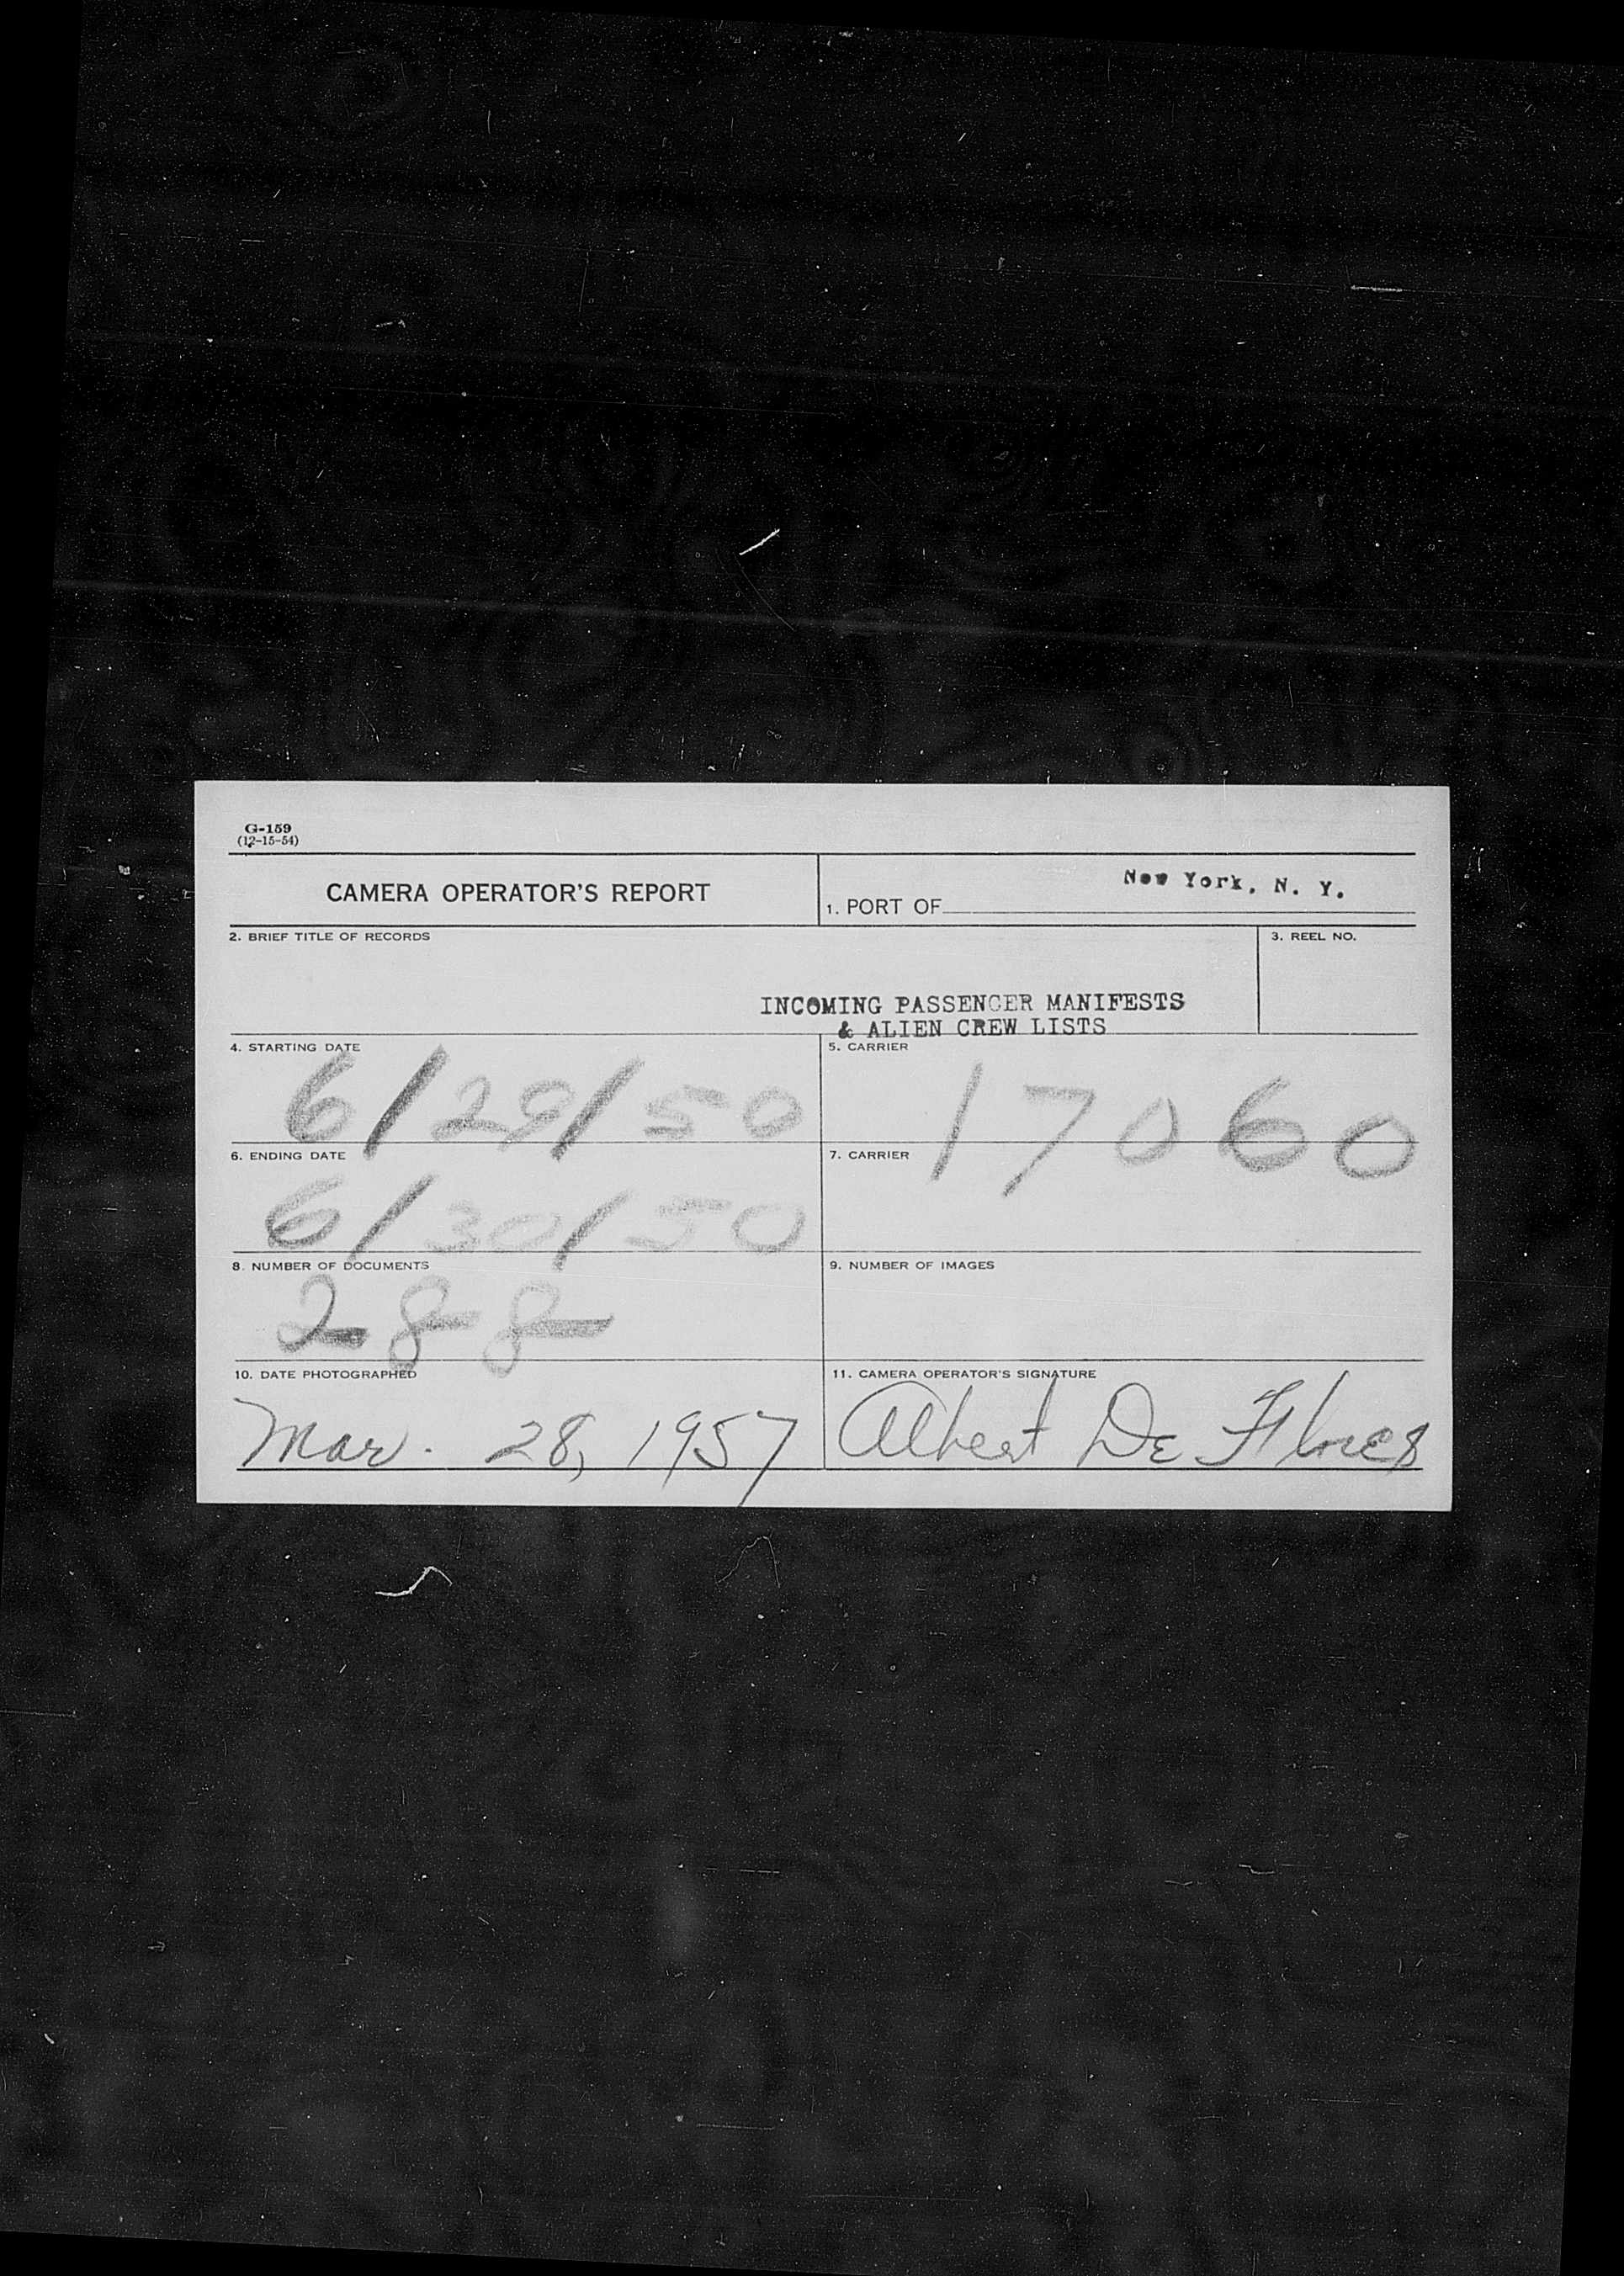 G-159
(12-15-54)
CAMERA OPERATOR'S REPORT
1. PORT OF New York, N. Y.
2. BRIEF TITLE OF RECORDS
3. REEL NO.
INCOMING PASSENGER MANIFESTS
& ALIEN CREW LISTS
4. STARTING DATE
6/29/50
5. CARRIER
17060
6. ENDING DATE
6/30/50
7. CARRIER
8. NUMBER OF DOCUMENTS
288
9. NUMBER OF IMAGES
10. DATE PHOTOGRAPHED
Mar. 28, 1957
11. CAMERA OPERATOR'S SIGNATURE
Albert De Flores